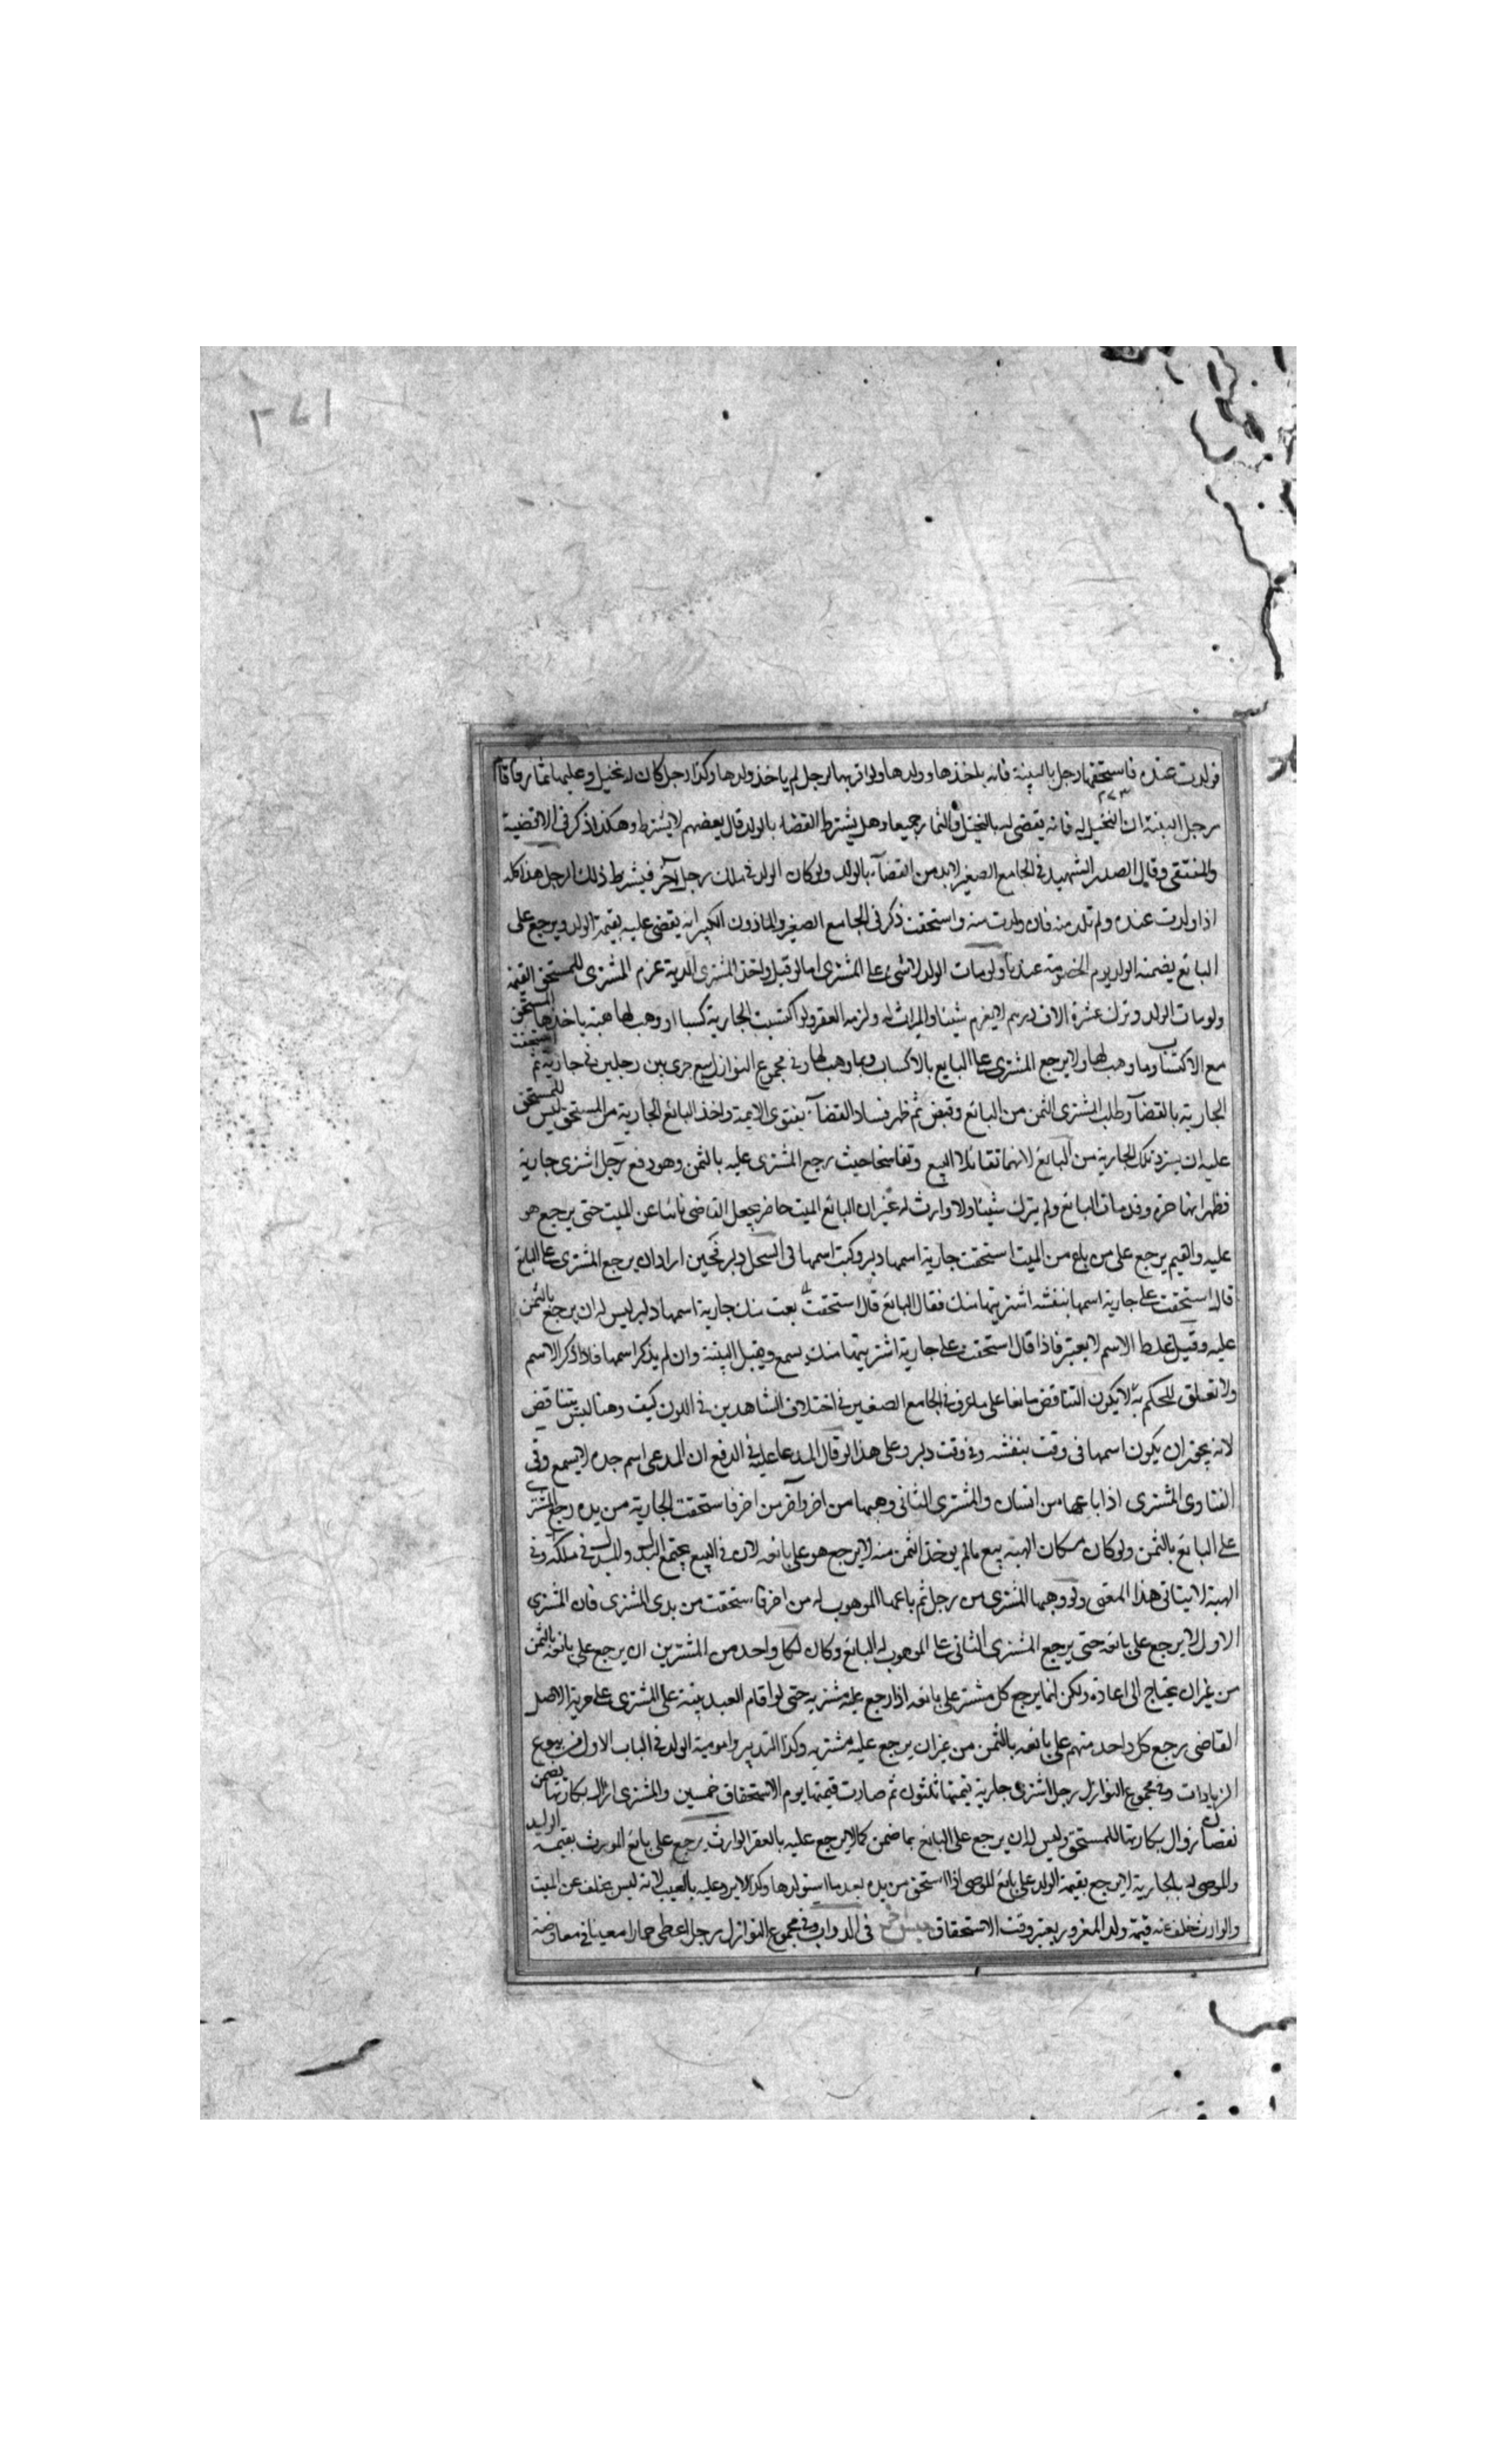 ١٧٢
فولدت عنده فاستحقها رجل بالبينة فانه ياخذها وولدها ولو اقر بها لرجل لم ياخذ ولدها وكذا رجل كان له نخيل وعليها ثمار فاقام
٢٧٣
رجل البينة ان النخيل له فانه يقضى له بالنخيل والثمار جميعا وهل يشترط القضاء بالولد قال بعضهم لا يشترط وهكذا ذكر فى الاقضية
والمنتقى وقال الصدر الشهيد فى الجامع الصغير لابد من القضآء بالولد ولو كان الولد فى ملك رجل آخر فيشرط ذلك الرجل هذا كله
اذا ولدت عنده ولم تلد منه فان ولدت منه واستحقت ذكر فى الجامع الصغير والماذون الكبير انه يقضى عليه بقيمة الولد ويرجع على
البائع يضمنه الولد يوم الخصومة عندنا ولو مات الولد لا شى على المشترى اما لو قتل واخذ المشترى الدية غرم المشترى للمستحق القيمة
ولو مات الولد وترك عشرة الاف درهم لا يغرم شيئا والميراث له ولزمه العقر ولو اكتسبت الجارية كسبا او وهب لها هبة ياخذها المستحق
مع الاكتساب وما وهب لها ولا يرجع المشترى على البايع بالاكساب وبما وهب لها وفى مجموع النوازل بيع جرى بين رجلين فى جارية ثم استحقت
الجارية بالقضآ وطلب المشترى الثمن من البائع وقبض ثم ظهر فساد القضآء بفتوى الايمة واخذ البائع الجارية من المستحق ليس للمستحق
عليه ان يسترد تلك الجارية من البائع لانهما تقائلا البيع وتفاسخا حيث رجع المشترى عليه بالثمن وهو دفع رجل اشترى جارية
فظهر انها حرة وقد مات البائع ولم يترك شيئا ولا وارث له غير ان البائع الميت حاضر يجعل القاضى نائبا عن الميت حتى يرجع هو
عليه والقيم يرجع على من باع من الميت استحقت جارية اسمها دلبر وكتب اسمها فى السجل دلبر فحين اراد ان يرجع المشترى على البائع
قال استحقت على جارية اسمها بنفشه اشتريتها منك فقال البائع قال استحقت بعت منك جارية اسمها دلبر ليس له ان يرجع بالثمن
عليه وقيل غلط الاسم لا يعتبر فاذا قال استحقت على جارية اشتريتها منك يسمع ويقبل البينة وان لم يذكر اسمها فلا ذكر الاسم
ولا تعلق للحكم به لا يكون التناقض مانعا على ما عرف فى الجامع الصغير فى اختلاف الشاهدين فى اللون كيف وهنا ليس بتناقض
لانه يجوز ان يكون اسمها فى وقت بنفشه وفى وقت دلبر وعلى هذا لو قال المدعا عليه فى الدفع ان المدعى اسم جده لا يسمع وفى
الفتاوى المشترى اذا باعها من انسان والمشترى الثانى وهبها من اخر وآخر من اخر فاستحقت الجارية من يده رجع المشترى
على البائع بالثمن ولو كان مكان الهبة بيع ما لم يوخذ الثمن منه لا يرجع هو على بائعه لان فى البيع يجتمع البدل والمبدل فى ملكه وفى
الهبة لا يتاتى هذا المعنى ولو وهبها المشترى من رجل ثم باعها الموهوب له من اخر فاستحقت من يدى المشترى فان المشترى
الاول لا يرجع على بائعه حتى يرجع المشترى الثانى على الموهوب له البائع وكان لكل واحد من المشترين ان يرجع على بائعه بالثمن
من غير ان يحتاج الى اعادة ولكن انما يرجع كل مشتر على بائعه اذا رجع عليه مشتريه حتى لو اقام العبد بينة على المشترى على حرية الاصل
القاضى رجع كل واحد منهم على بائعه بالثمن من غير ان يرجع عليه مشتريه وكذا التدبير وامومية الولد فى الباب الاول من بيوع
الزيادات وفى مجموع النوازل رجل اشترى جارية قيمتها ثلثون ثم صارت قيمتها يوم الاستحقاق خمسين والمشترى ازال بكارتها يضمن
نقصان زوال بكارتها للمستحق وليس له ان يرجع على البائع بما ضمن كما لا يرجع عليه بالعقر الوارث يرجع على بائع المورث بقيمة الوليد
والموصى له بالجارية لا يرجع بقيمة الولد على بائع الموصى اذا استحق من يده بعد ما استولدها وكذا لا يرد عليه بالعيب لانه ليس بخلف عن الميت
والوارث خلف عنه قيمة ولد المغرور يعتبر وقت الاستحقاق فى الدواب وفى مجموع النوازل رجل اعطى حمارا معينا فى معاوضة